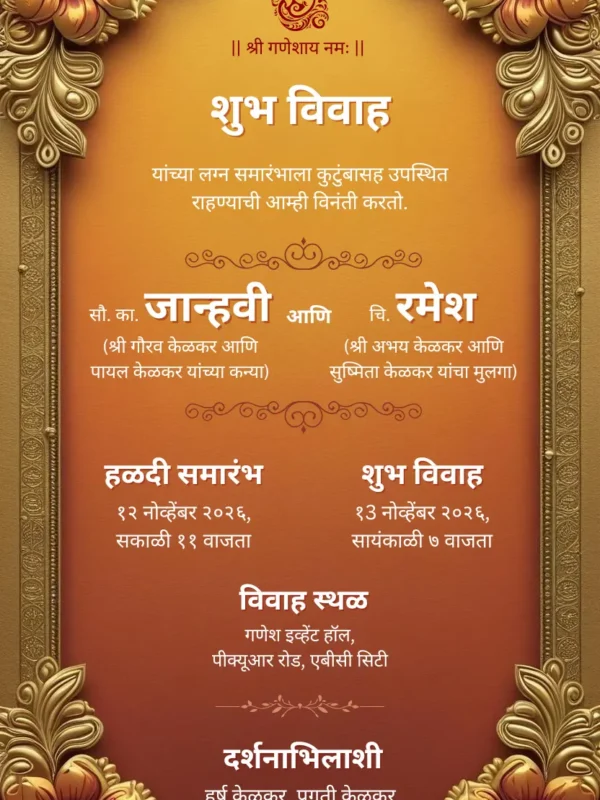 || श्री गणेशाय नमः ||
शुभ विवाह
यांच्या लग्न समारंभाला कुटुंबासह उपस्थित
राहण्याची आम्ही विनंती करतो.
सौ. का. जान्हवी आणि चि. रमेश
(श्री गौरव केळकर आणि
पायल केळकर यांच्या कन्या)
(श्री अभय केळकर आणि
सुष्मिता केळकर यांचा मुलगा)
हळदी समारंभ
१२ नोव्हेंबर २०२६,
सकाळी ११ वाजता
शुभ विवाह
१3 नोव्हेंबर २०२६,
सायंकाळी ७ वाजता
विवाह स्थळ
गणेश इव्हेंट हॉल,
पीक्यूआर रोड, एबीसी सिटी
दर्शनाभिलाशी
हर्ष केळकर, प्रगती केळकर